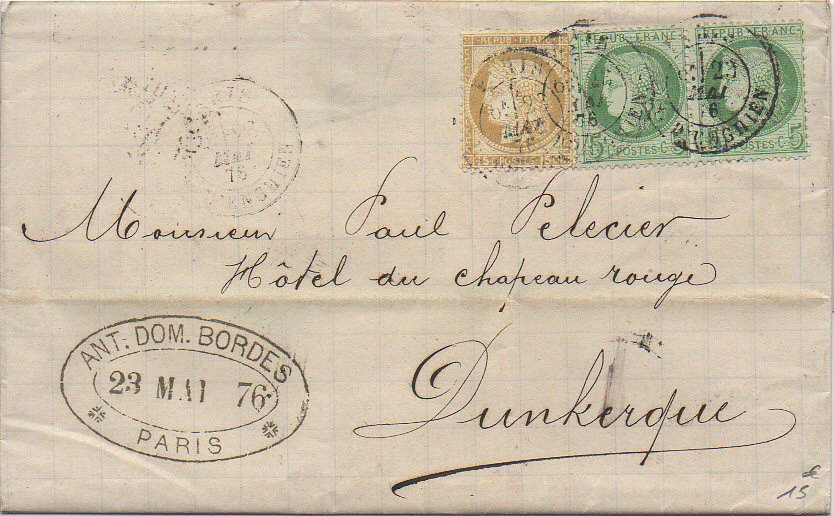 REPUB. FRANC.
REPUB. FRANC.
REPUB. FRANC.
15 C. POSTES 15 C.
5 POSTES C.
POSTES C. 5
23
MAI
76
D'ENGHIEN
MAI
76
Monsieur Paul Pelecier
Hôtel du chapeau rouge
Dunkerque
ANT. DOM. BORDES
23 MAI 76
PARIS
15